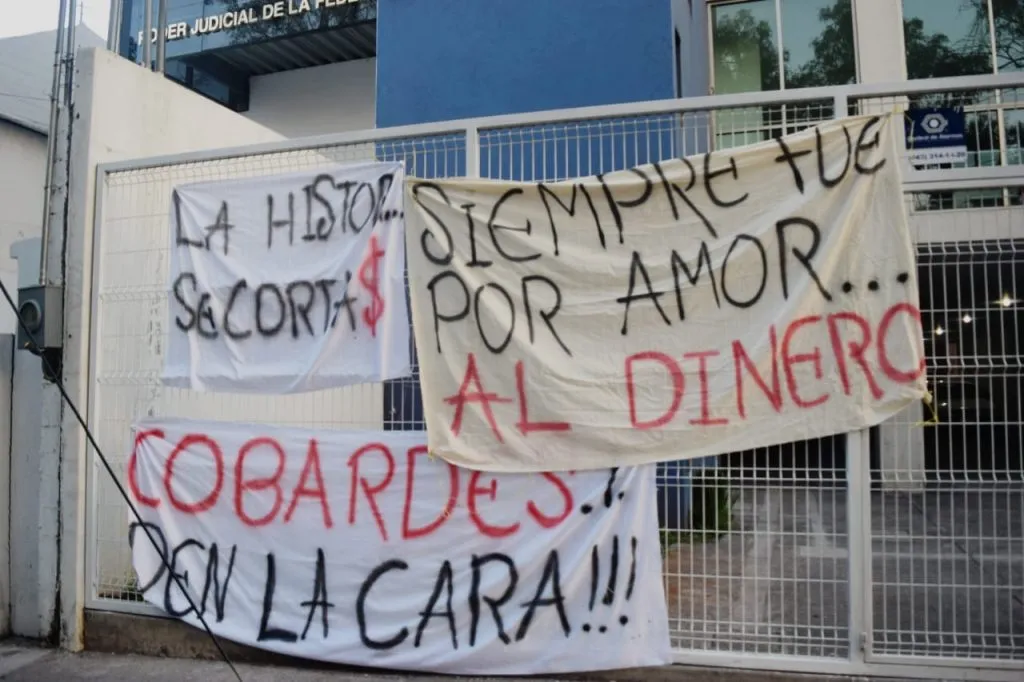 PODER JUDICIAL DE LA FEDE
LA HISTOR...
SE CORTA$
SIEMPRE FUE
POR AMOR....
AL DINERO
COBARDES.!.
DEN LA CARA!!!